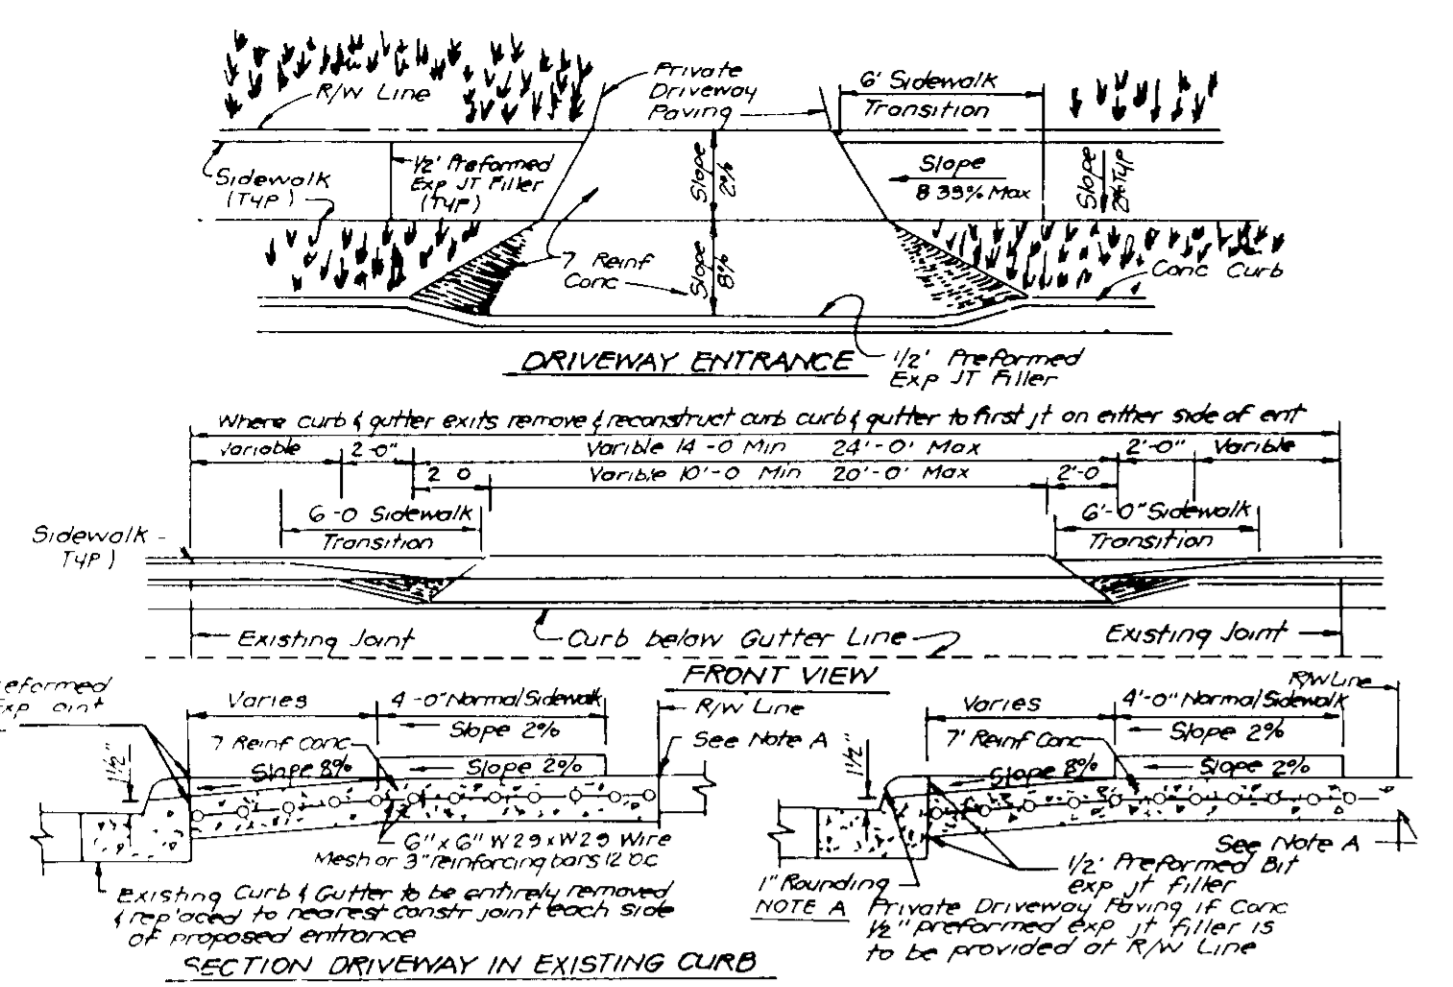 R/W Line
Private
Driveway
Paving
6' Sidewalk
Transition
Sidewalk
(TYP)
1/2' Preformed
Exp JT Filler
(TYP)
Slope
2%
Slope
8.33% Max
Slope
TYP
7 Reinf
Conc
Slope
8%
Conc Curb
DRIVEWAY ENTRANCE
1/2' Preformed
Exp JT Filler
Where curb & gutter exits remove & reconstruct curb curb & gutter to first jt on either side of ent
Variable
2-0"
Varible 14-0 Min 24'-0' Max
2'-0"
Varible
2 0
Varible 10'-0 Min 20'-0' Max
2'-0
6-0 Sidewalk
Transition
6'-0" Sidewalk
Transition
Sidewalk -
TYP)
Existing Joint
Curb below Gutter Line
Existing Joint
FRONT VIEW
eformed
Exp oint
Varies
4-0" Normal Sidewalk
Slope 2%
R/W Line
See Note A
7 Reinf Conc
Slope 8%
Slope 2%
1½"
6" x 6" W29 x W29 Wire
Mesh or 3" reinforcing bars 12 o.c
Existing Curb & Gutter to be entirely removed
& rep'aced to nearest constr joint each side
of proposed entrance
SECTION DRIVEWAY IN EXISTING CURB
R/W Line
Varies
4'-0" Normal Sidewalk
Slope 2%
7' Reinf Conc
Slope 8%
Slope 2%
1½"
See Note A
1/2' Preformed Bit
exp jt filler
1" Rounding
NOTE A Private Driveway Paving if Conc
½" preformed exp jt filler is
to be provided at R/W Line